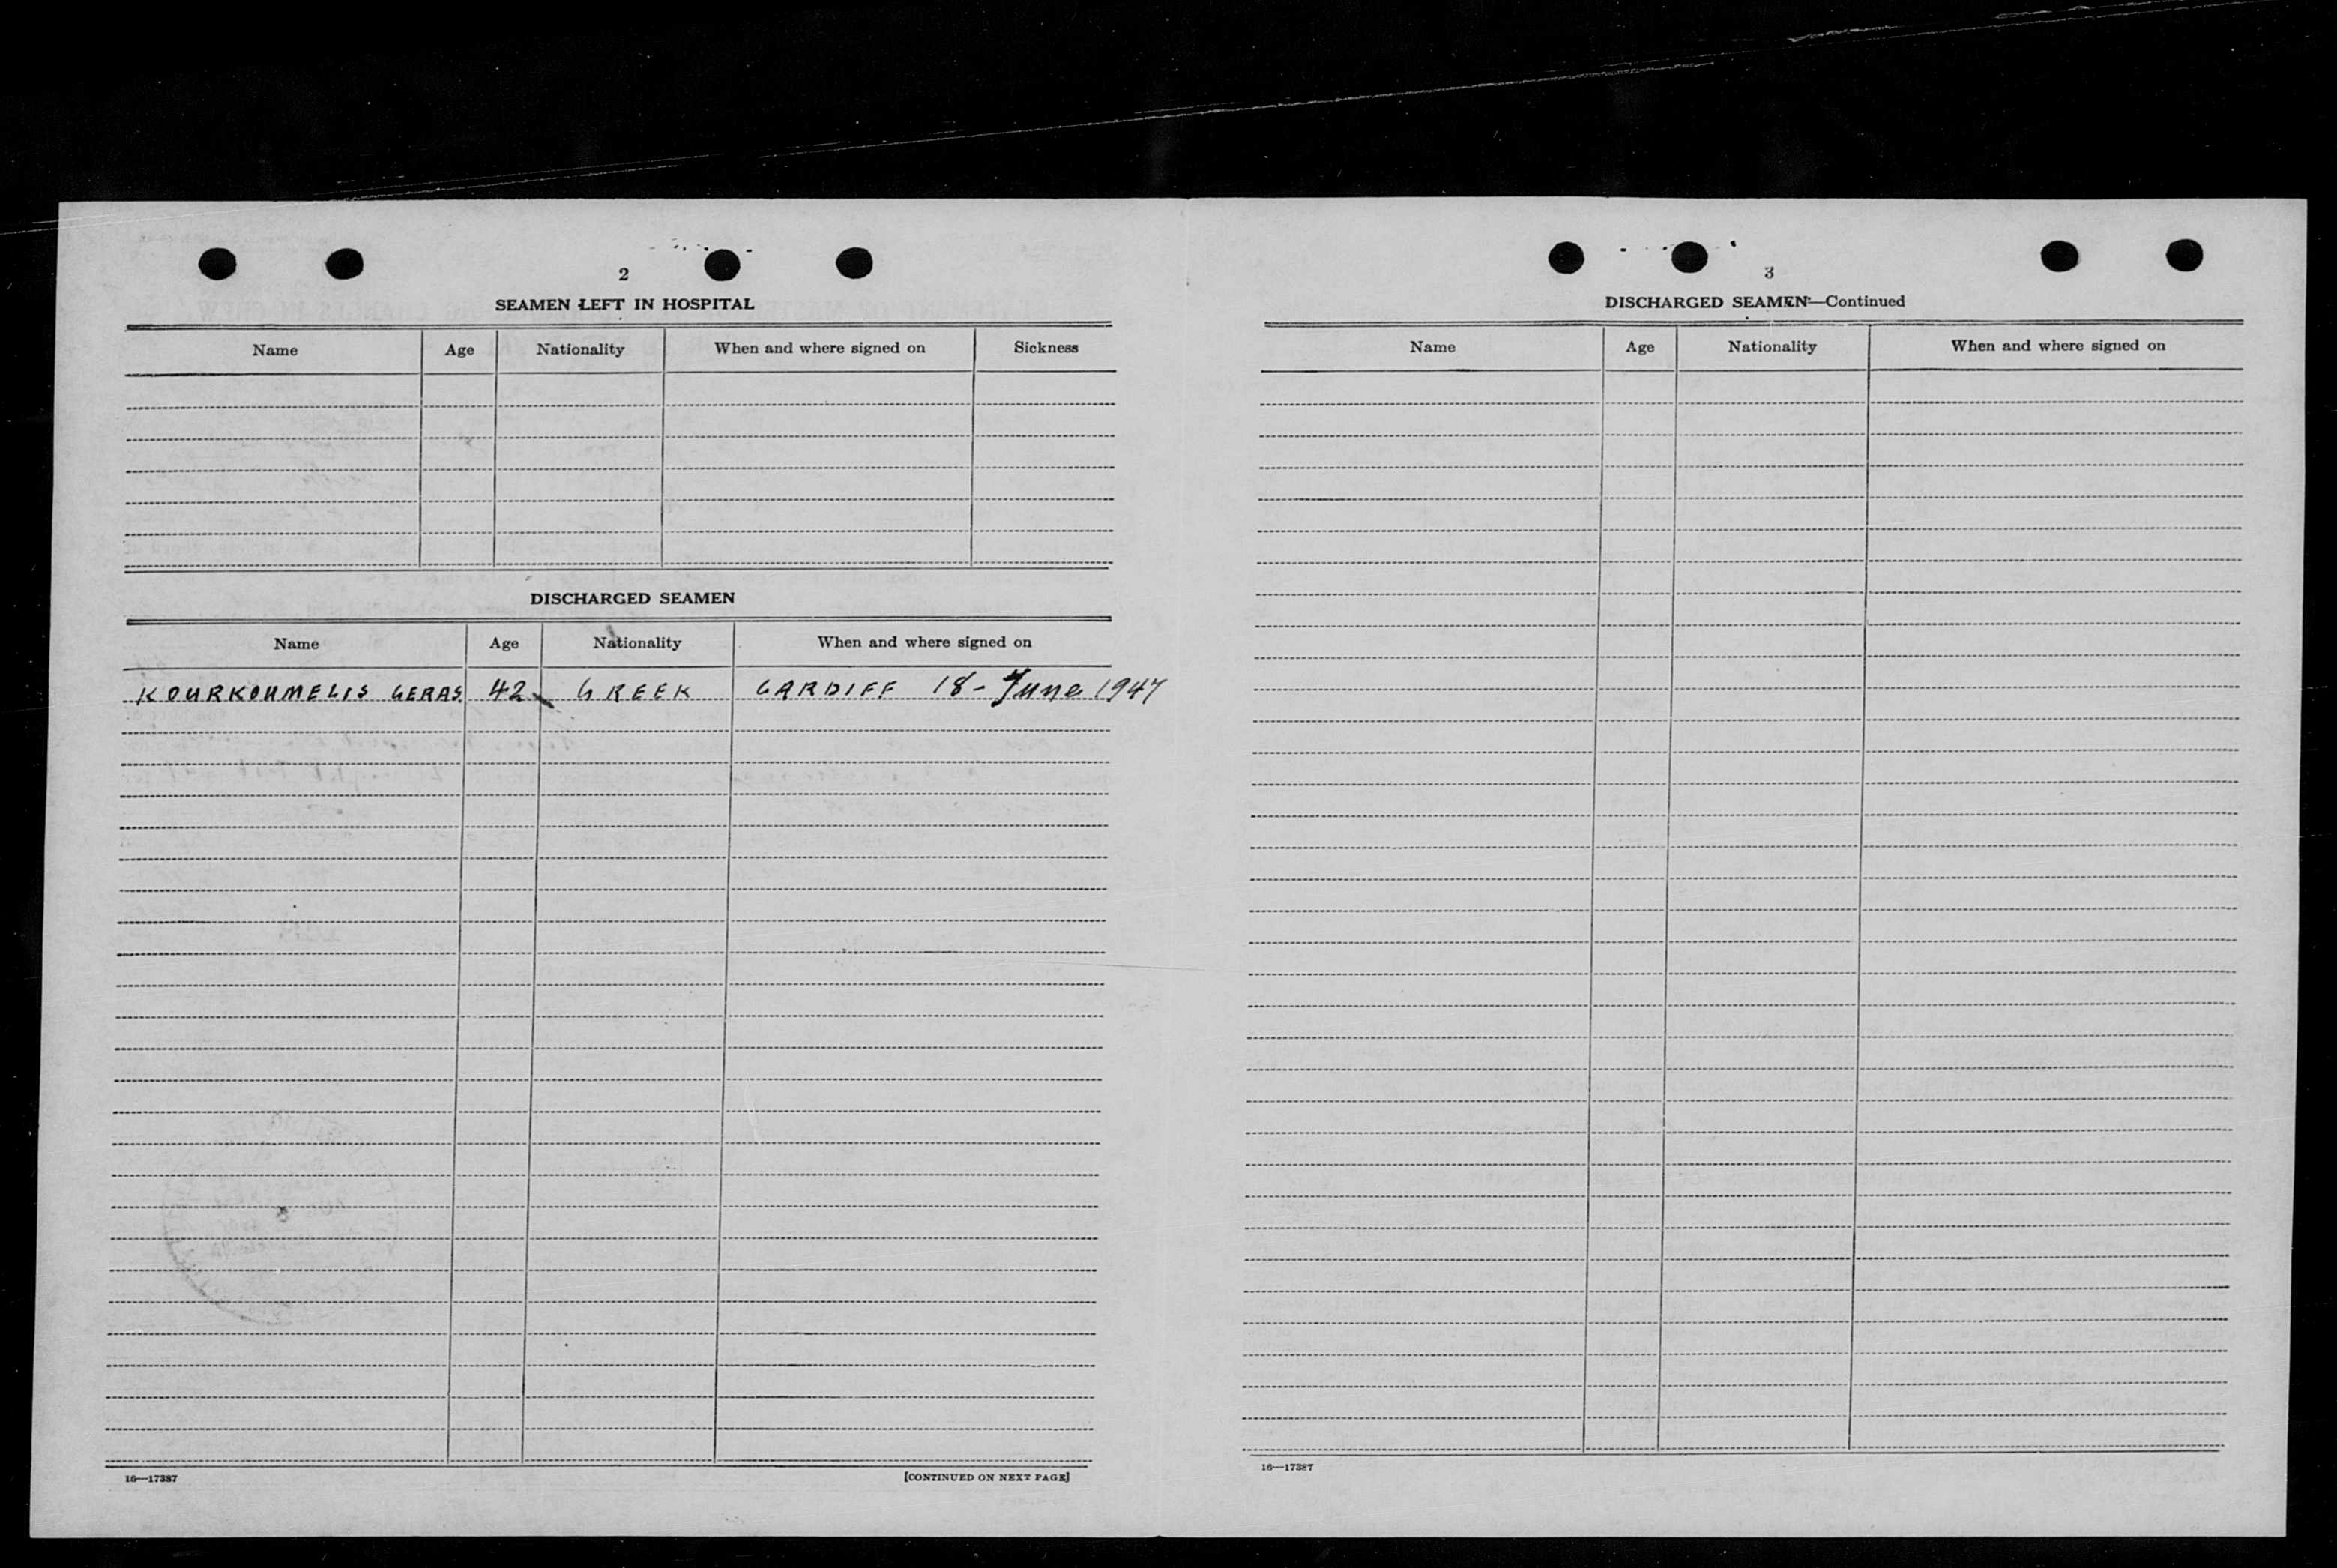 2
SEAMEN LEFT IN HOSPITAL
Name Age Nationality When and where signed on Sickness
DISCHARGED SEAMEN
Name Age Nationality When and where signed on
KOURKOUMELIS GERAS. 42 GREEK CARDIFF 18- June 1947
16—17387 [CONTINUED ON NEXT PAGE]
3
DISCHARGED SEAMEN—Continued
Name Age Nationality When and where signed on
16—17387